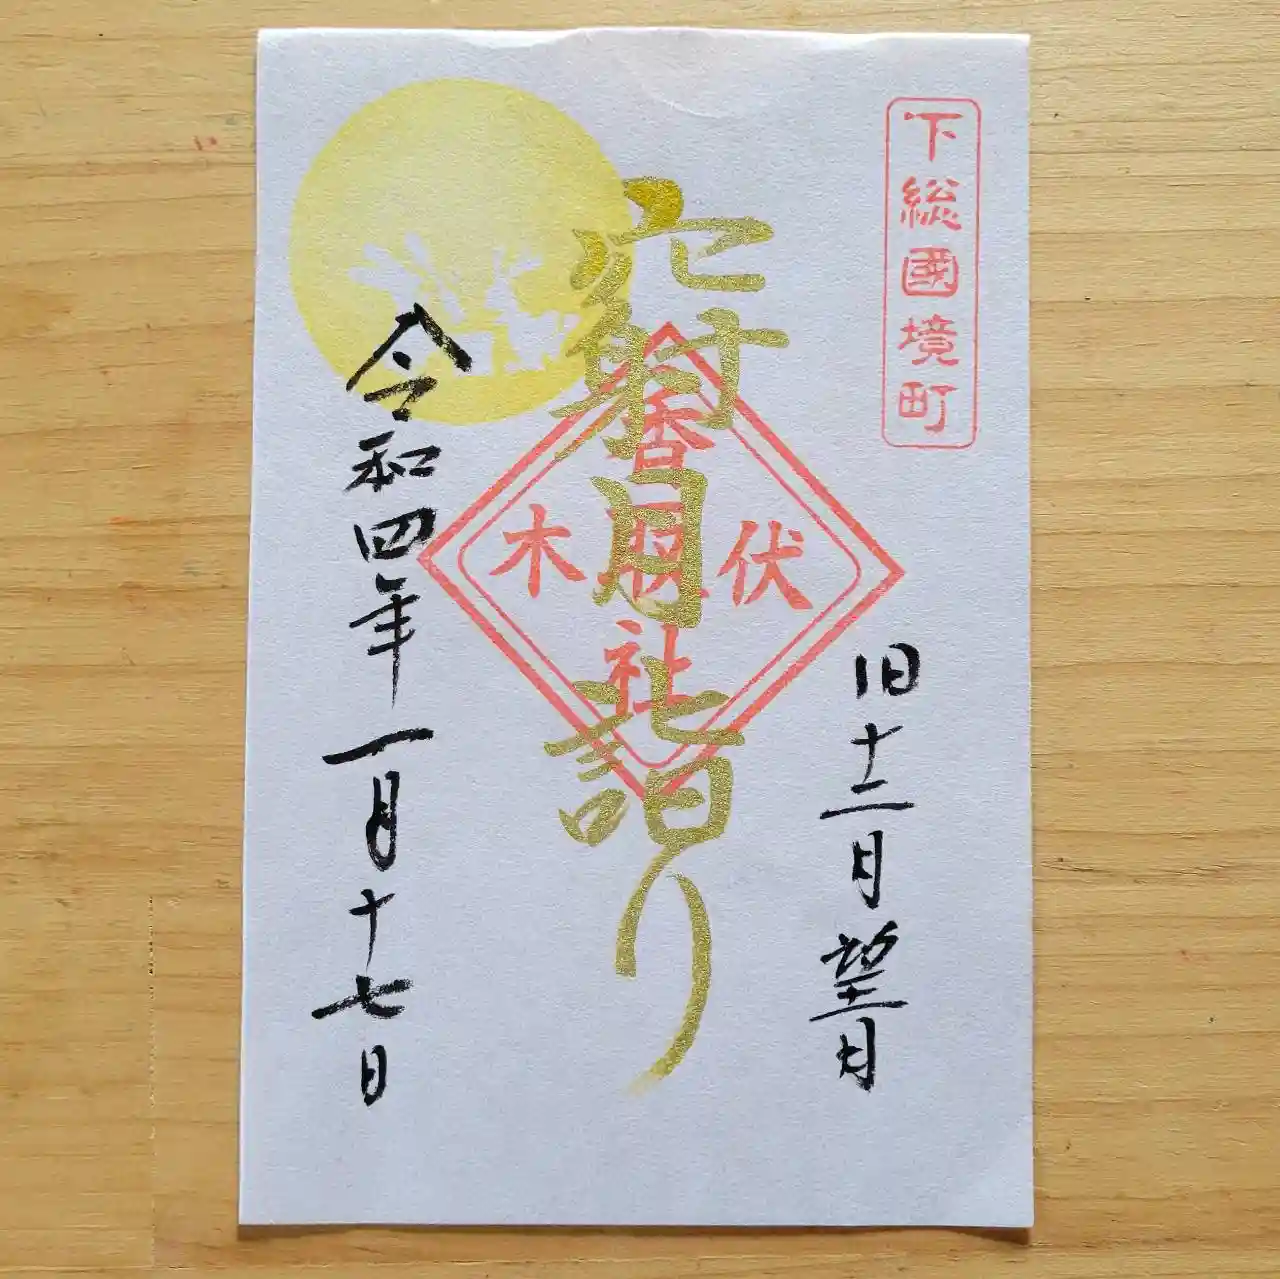 下総國境町
旧十二月望月
月詣り
伏木
香取社
令和四年一月十七日